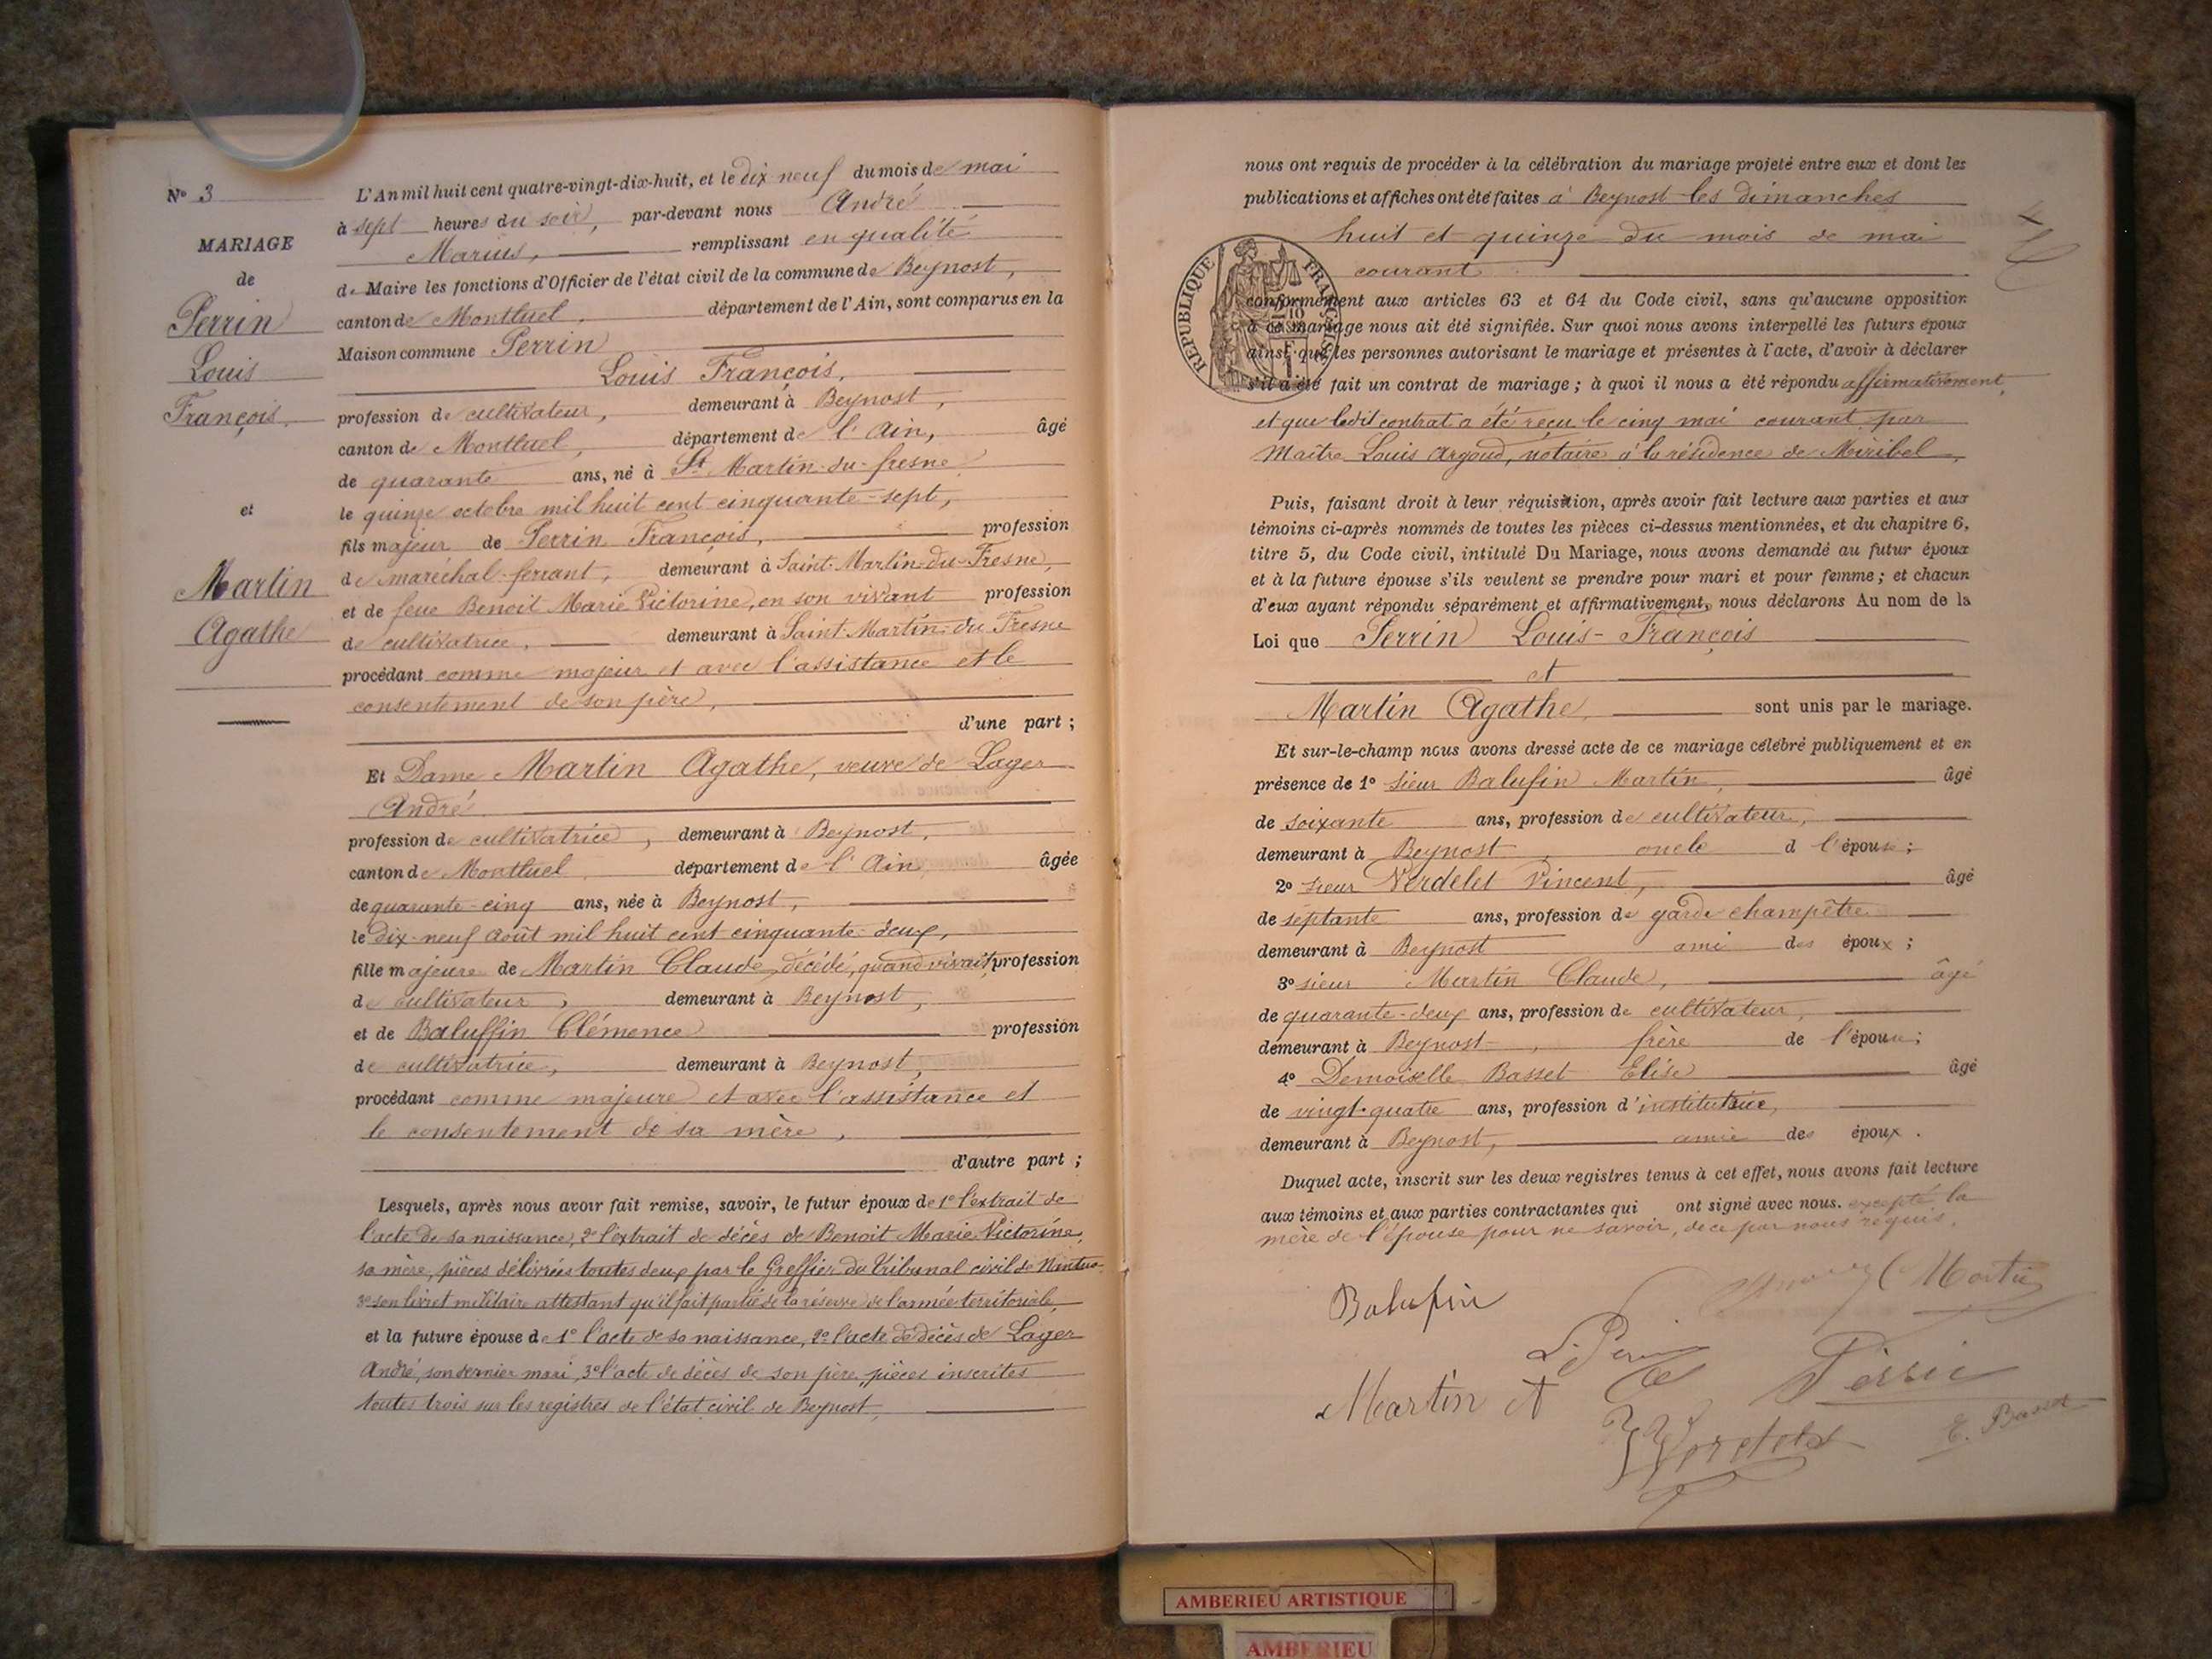 N° 3
MARIAGE
de
Perrin
Louis
François.
et
Martin
Agathe
L'An mil huit cent quatre-vingt-dix-huit, et le dix-neuf du mois de mai
à sept heures du soir, par-devant nous André
Marius, remplissant en qualité
de Maire les fonctions d'Officier de l'état civil de la commune de Beynost,
canton de Montluel, département de l'Ain, sont comparus en la
Maison commune Perrin
Louis François,
profession de cultivateur, demeurant à Beynost,
canton de Montluel, département de l'Ain, âgé
de quarante ans, né à St Martin-du-fresne
le quinze octobre mil huit cent cinquante-sept,
fils majeur de Perrin François, profession
de maréchal-ferrant, demeurant à Saint-Martin-du-Fresne,
et de feue Benoit Marie Victorine, en son vivant profession
de cultivatrice, demeurant à Saint-Martin-du-Fresne
procédant comme majeur et avec l'assistance et le
consentement de son père,
d'une part ;
Et Dame Martin Agathe, veuve de Lager
André
profession de cultivatrice, demeurant à Beynost,
canton de Montluel département de l'Ain âgée
de quarante-cinq ans, née à Beynost,
le dix-neuf Août mil huit cent cinquante-deux,
fille majeure de Martin Claude, décédé, quand vivait, profession
de cultivateur, demeurant à Beynost,
et de Baluffin Clémence profession
de cultivatrice, demeurant à Beynost,
procédant comme majeure et avec l'assistance et
le consentement de sa mère,
d'autre part ;
Lesquels, après nous avoir fait remise, savoir, le futur époux de 1° l'extrait de
l'acte de sa naissance, 2° l'extrait de décès de Benoit Marie Victorine,
sa mère, pièces délivrées toutes deux par le Greffier du Tribunal civil de Nantua
3° son livret militaire attestant qu'il fait partie de la réserve de l'armée territoriale,
et la future épouse de 1° l'acte de sa naissance, 2° l'acte de décès de Lager
André, son dernier mari, 3° l'acte de décès de son père, pièces inscrites
toutes trois sur les registres de l'état civil de Beynost,
nous ont requis de procéder à la célébration du mariage projeté entre eux et dont les
publications et affiches ont été faites à Beynost les dimanches
huit et quinze du mois de mai
courant
RÉPUBLIQUE FRANÇAISE
conformément aux articles 63 et 64 du Code civil, sans qu'aucune opposition
à ce mariage nous ait été signifiée. Sur quoi nous avons interpellé les futurs époux
ainsi que les personnes autorisant le mariage et présentes à l'acte, d'avoir à déclarer
s'il a été fait un contrat de mariage ; à quoi il nous a été répondu affirmativement,
et que ledit contrat a été reçu le cinq mai courant par
Maître Louis Argoud, notaire à la résidence de Miribel,
Puis, faisant droit à leur réquisition, après avoir fait lecture aux parties et aux
témoins ci-après nommés de toutes les pièces ci-dessus mentionnées, et du chapitre 6,
titre 5, du Code civil, intitulé Du Mariage, nous avons demandé au futur époux
et à la future épouse s'ils veulent se prendre pour mari et pour femme ; et chacun
d'eux ayant répondu séparément et affirmativement, nous déclarons Au nom de la
Loi que Perrin Louis-François
et
Martin Agathe, sont unis par le mariage.
Et sur-le-champ nous avons dressé acte de ce mariage célébré publiquement et en
présence de 1° sieur Balufin Martin, âgé
de soixante ans, profession de cultivateur,
demeurant à Beynost, oncle d l'épouse ;
2° sieur Verdelet Vincent, âgé
de septante ans, profession de garde champêtre
demeurant à Beynost ami des époux ;
3° sieur Martin Claude, âgé
de quarante-deux ans, profession de cultivateur,
demeurant à Beynost, frère de l'épouse ;
4° Demoiselle Basset Elise âgé
de vingt-quatre ans, profession d'institutrice,
demeurant à Beynost, amie des époux.
Duquel acte, inscrit sur les deux registres tenus à cet effet, nous avons fait lecture
aux témoins et aux parties contractantes qui ont signé avec nous. excepté la
mère de l'épouse pour ne savoir, de ce par nous requis.
Balufin
Martin
L. Perrin
Martin A
Perrin
Verdelet
E. Basset
AMBERIEU ARTISTIQUE
AMBERIEU